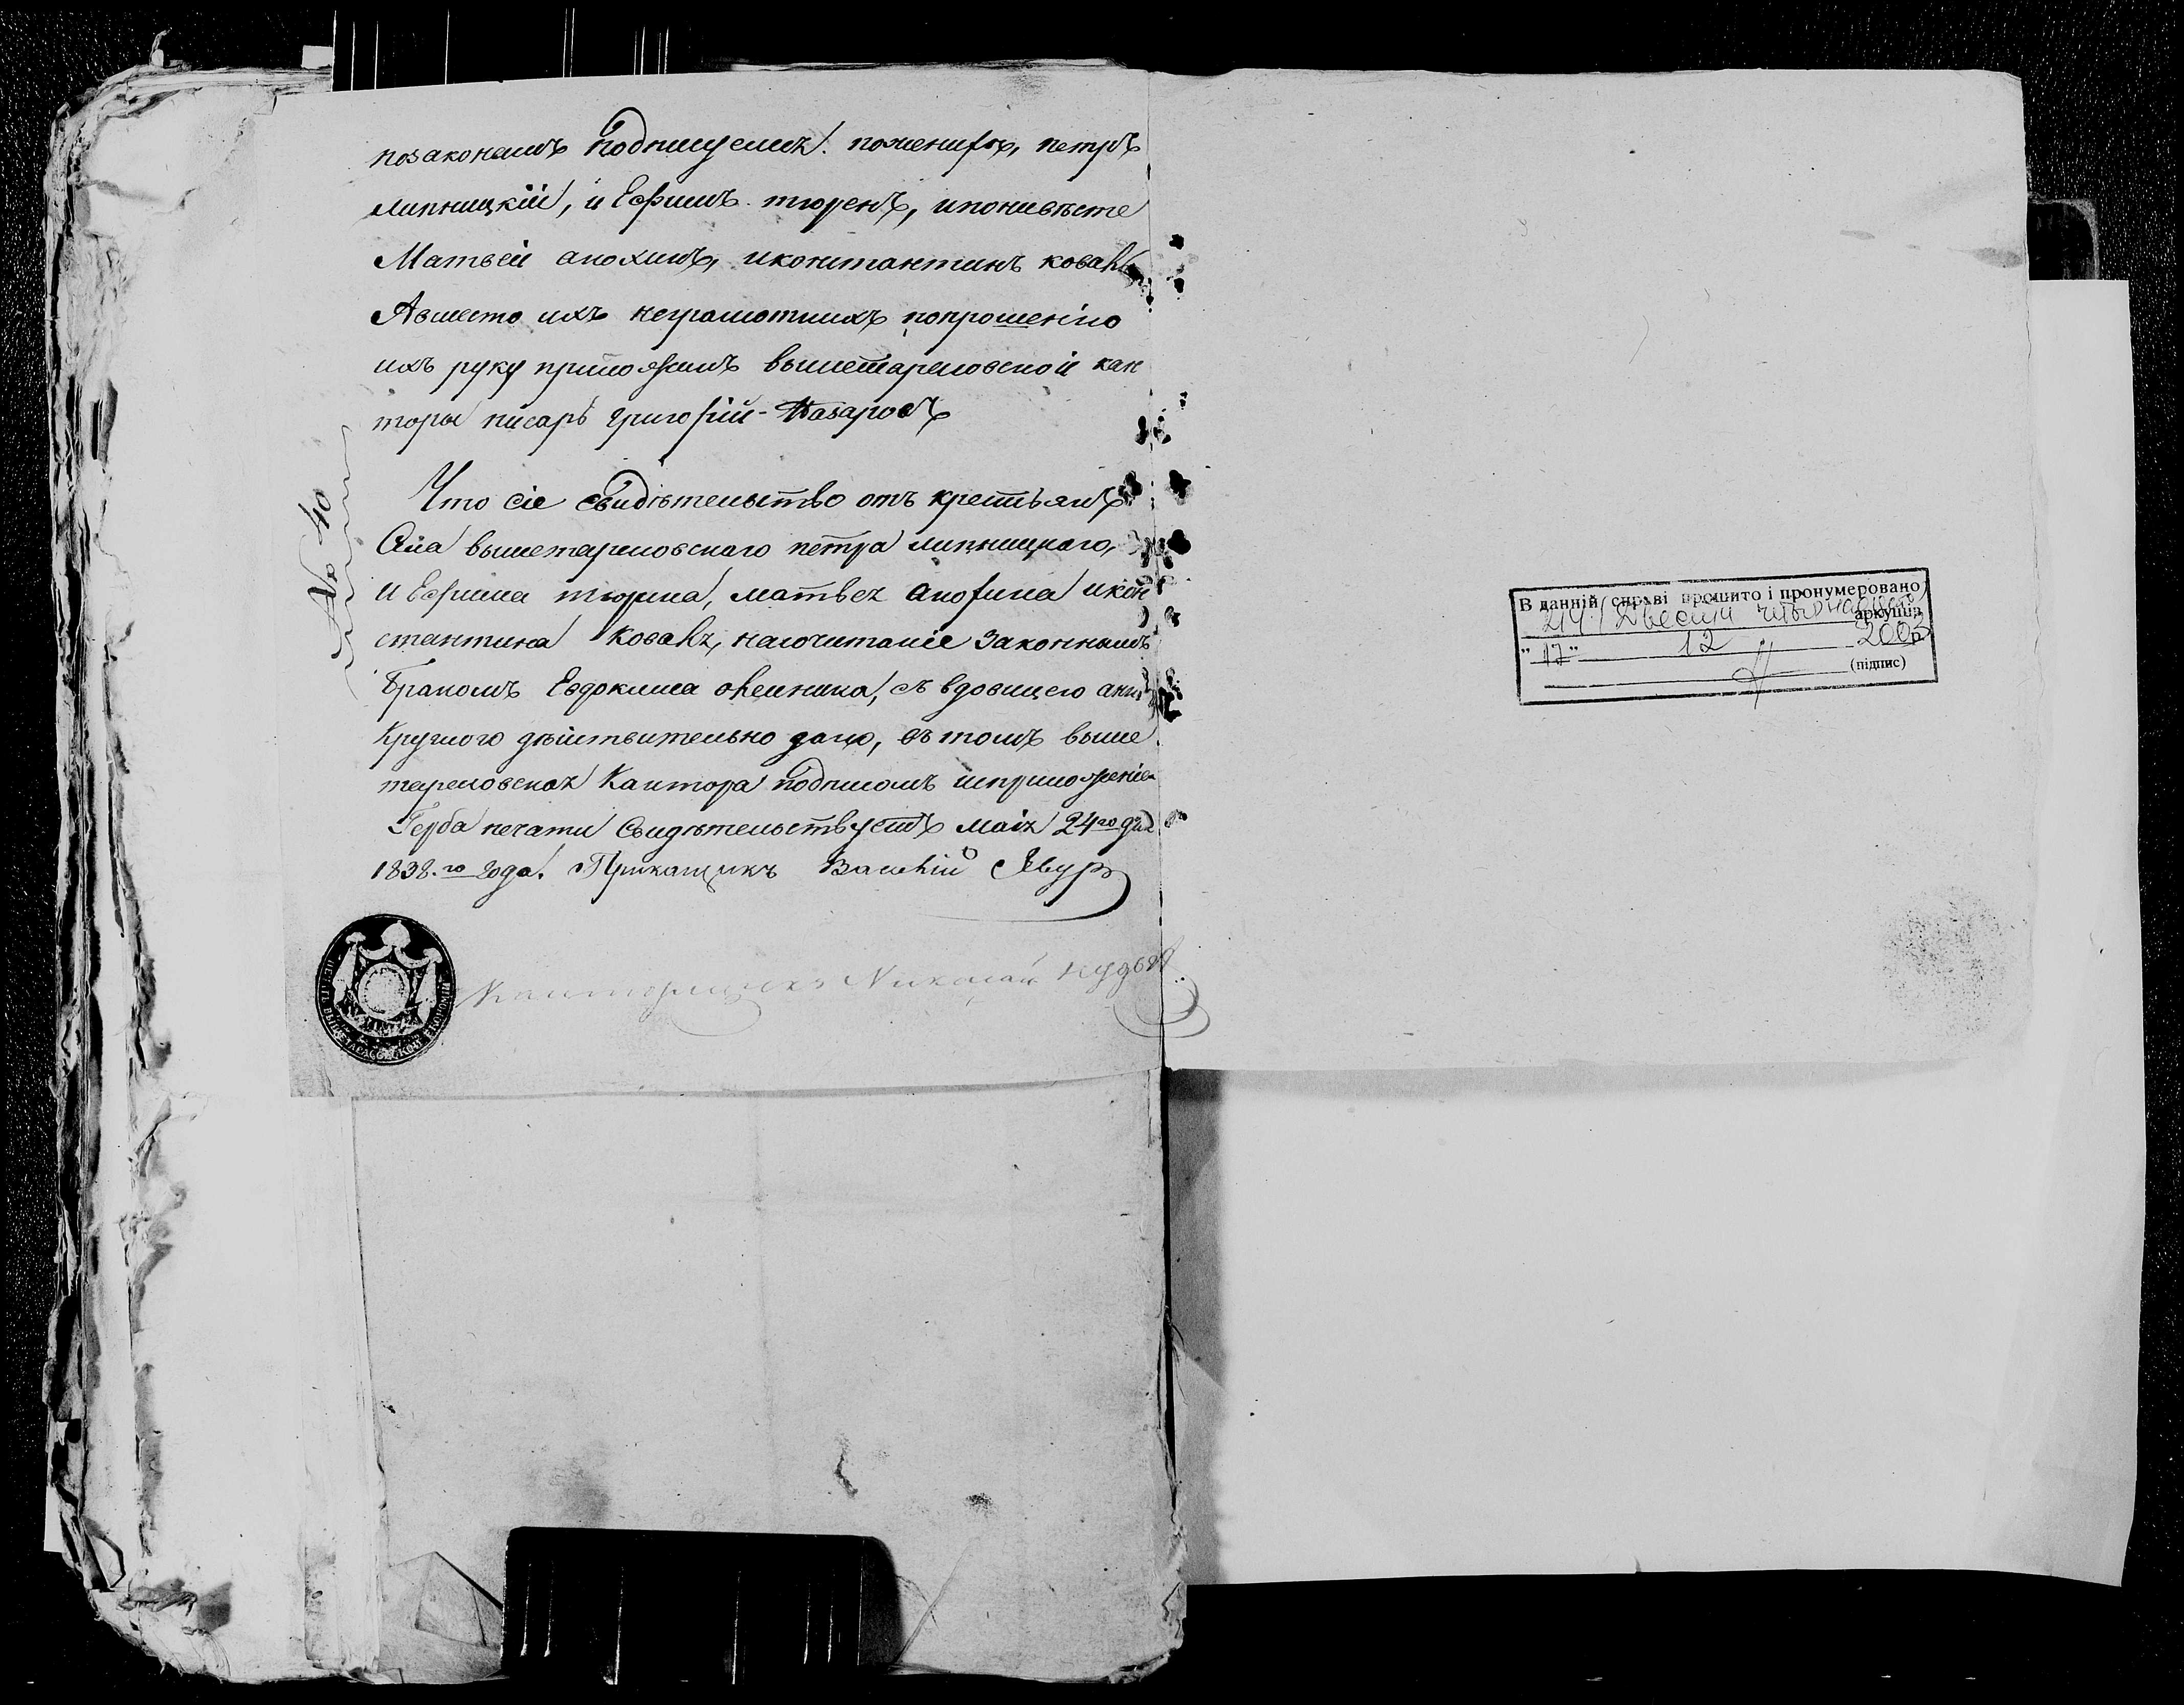 позаконамъ подпишемся. поженихъ, петръ
липницкій, и Ефимъ тюренъ, ипоневѣсте
Матвей анохинъ, иконстантинъ коваль
Авместо ихъ неграмотныхъ попрошенію
ихъ руку приложилъ вышетарасовской кан
торы писарь григорій Назаровъ
№ 40
Что сіе свидѣтельство отъ крестьянъ
Села вышетарасовскаго петра липницкаго,
И Ефима тюрина, матвея анохина икон
стантина Коваля, насочитаніе Законнымъ
Бракомъ Евдокима олейника, съ вдовицею
Круглого дѣйствительно дано, въ томъ выше
тарасовская Кантора подписомъ иприложеніемъ
Герба печати Свидѣтельствуетъ маія 24го дня
1838.го года. Прикащикъ Василій Явур
Канторщикъ Николай
ПЕЧАТЬ ВЫШЕТАРАСОВСКОЙ ЕКОНОМІИ
В данній справі прошито і пронумеровано
214 (Двести чотырнадцать) аркушів
"17" 12 2003 р.
(підпис)